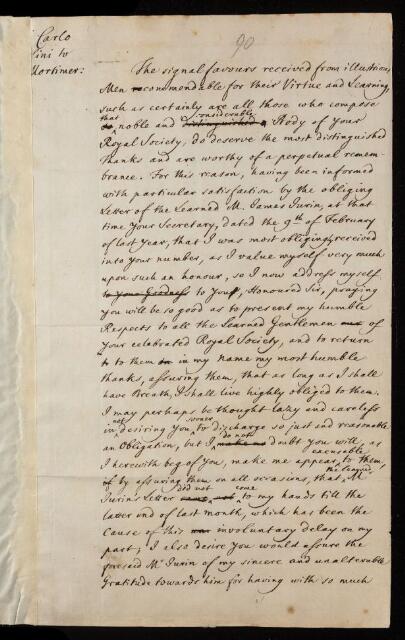 90
Carlo
ini to
Mortimer:
The signal favours received from illustrious
Men recomendable for their Virtue and Learning,
such as certainly are all those who compose
that noble and considerable Body of your
Royal Society, do deserve the most distinguished
thanks and are worthy of a perpetual remem-
brance. For this reason, having been informed
with particular satisfaction by the obliging
Letter of the Learned M. James Jurin, at that
time Your Secretary, dated the 9th of February
of last Year, that I was most obligingly received
into your number, as I value myself very much
upon such an honour, so I now address myself
to your Goodness to You, Honoured Sir, praying
you will be so good as to present my humble
Respects to all the Learned Gentlemen of
Your celebrated Royal Society, and to return
to them in my name my most humble
thanks, assuring them, that as long as I shall
have Breath, I shall live highly obliged to them.
I may perhaps be thought lazy and careless
in not desiring You sooner to discharge so just and reasonable
an Obligation, but I do not doubt you will, as
I herewith beg of you, make me appear excusable to them,
by assuring them on all occasions, that the learned M
Jurin's Letter did not come to my hands till the
latter end of last month, which has been the
Cause of this involuntary delay on my
part; I also desire you would assure the
foresaid Mr Jurin of my sincere and unalterable
Gratitude towards him for having with so much